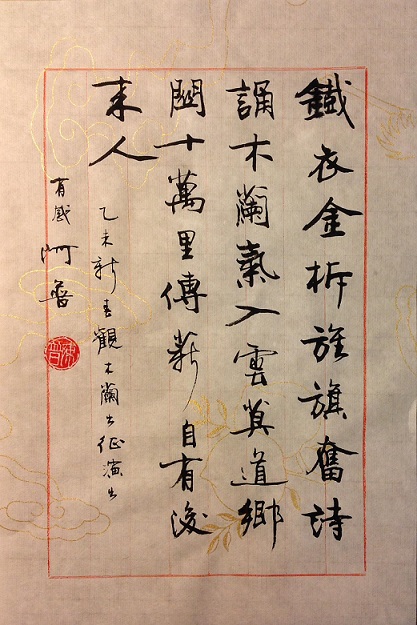 鐵衣金柝旌旗奮詩
誦木蘭氣入雲莫道鄉
關十萬里傳薪自有後
来人
乙未新春觀木蘭出征演出
有感 阿